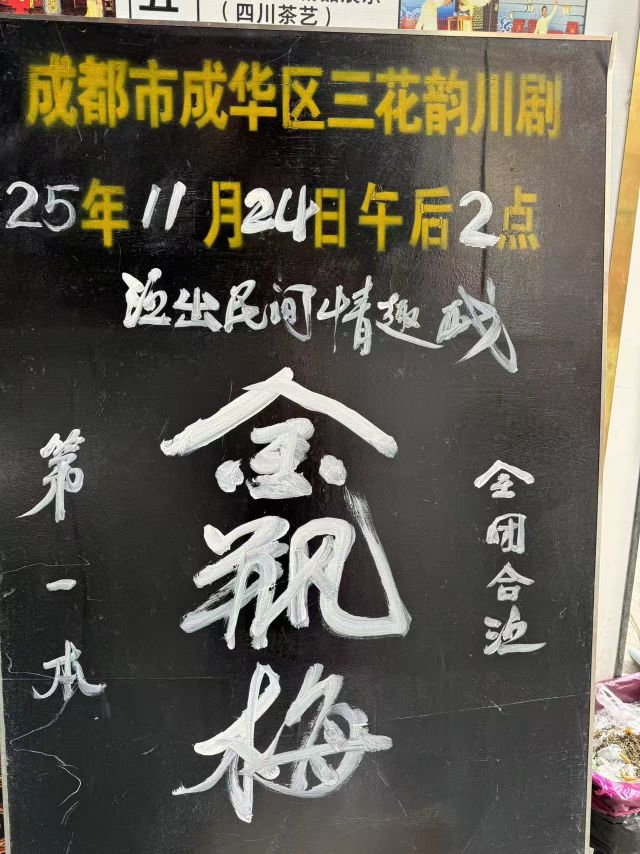 五
（四川茶艺）
成都市成华区三花韵川剧
25年11月24日午后2点
演出民间情趣戏
第一本
金瓶梅
全团合演